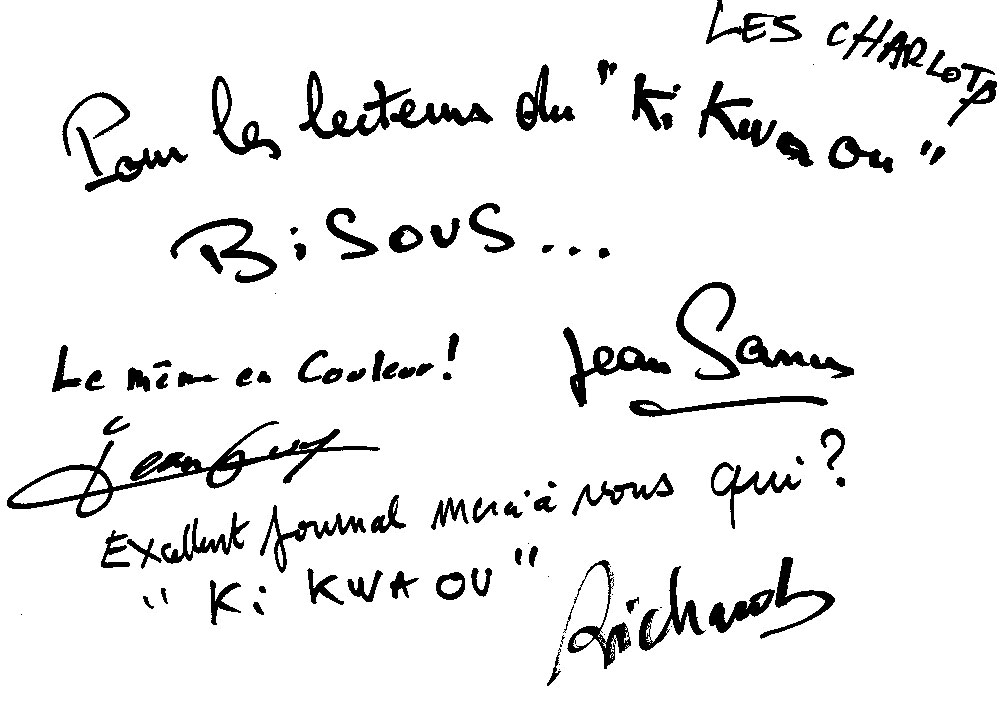 LES CHARLOTS
Pour les lecteurs du "Ki Kwa ou"
BiSOUS...
Le même en Couleur!
Jean Sarrus
Jean Guy
Excellent journal merci à vous qui?
"Ki KWA OU"
Richard